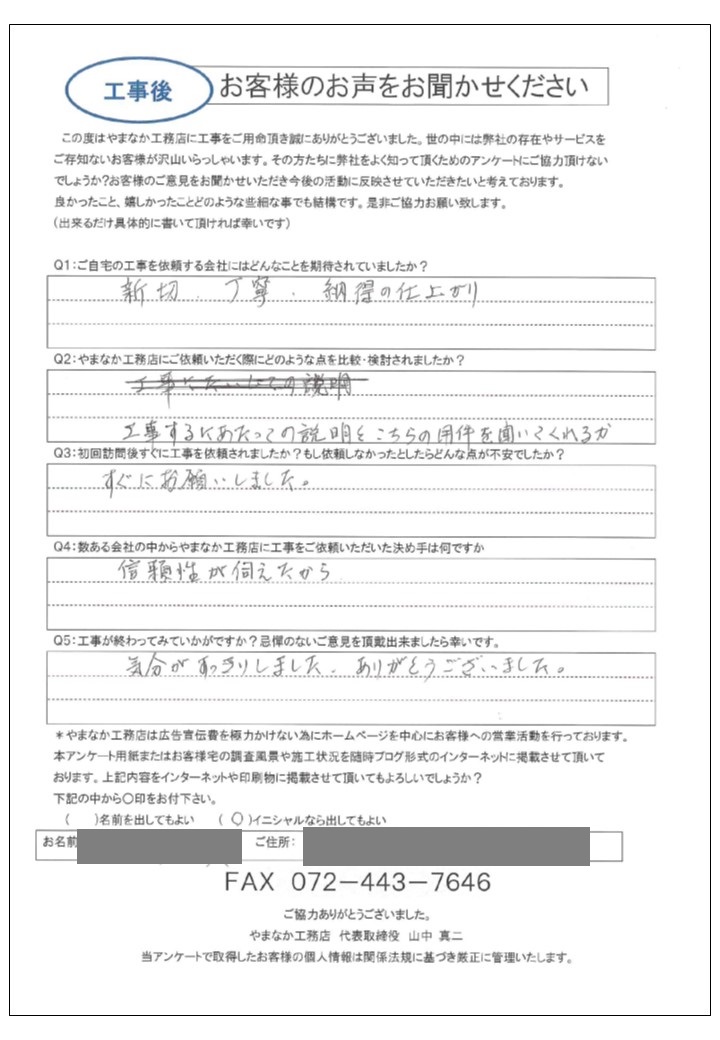 工事後
お客様のお声をお聞かせください
この度はやまなか工務店に工事をご用命頂き誠にありがとうございました。世の中には弊社の存在やサービスを
ご存知ないお客様が沢山いらっしゃいます。その方たちに弊社をよく知って頂くためのアンケートにご協力頂けない
でしょうか?お客様のご意見をお聞かせいただき今後の活動に反映させていただきたいと考えております。
良かったこと、嬉しかったことどのような些細な事でも結構です。是非ご協力お願い致します。
(出来るだけ具体的に書いて頂ければ幸いです)
Q1:ご自宅の工事を依頼する会社にはどんなことを期待されていましたか?
新切、丁寧、納得の仕上がり
Q2:やまなか工務店にご依頼いただく際にどのような点を比較・検討されましたか?
工事にたいしての説明
工事するにあたっての説明とこちらの用件を聞いてくれるか
Q3:初回訪問後すぐに工事を依頼されましたか?もし依頼しなかったとしたらどんな点が不安でしたか?
すぐにお願いしました。
Q4:数ある会社の中からやまなか工務店に工事をご依頼いただいた決め手は何ですか
信頼性が伺えたから
Q5:工事が終わってみていかがですか?忌憚のないご意見を頂戴出来ましたら幸いです。
気分がすっきりしました、ありがとうございました。
*やまなか工務店は広告宣伝費を極力かけない為にホームページを中心にお客様への営業活動を行っております。
本アンケート用紙またはお客様宅の調査風景や施工状況を随時ブログ形式のインターネットに掲載させて頂いて
おります。上記内容をインターネットや印刷物に掲載させて頂いてもよろしいでしょうか?
下記の中から〇印をお付下さい。
( )名前を出してもよい (○)イニシャルなら出してもよい
お名前 ご住所:
FAX 072-443-7646
ご協力ありがとうございました。
やまなか工務店 代表取締役 山中 真二
当アンケートで取得したお客様の個人情報は関係法規に基づき厳正に管理いたします。